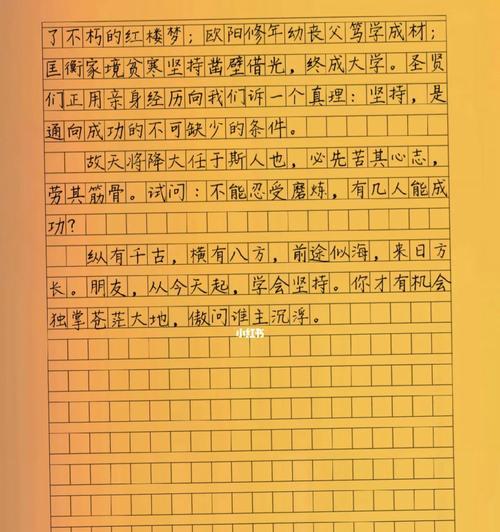 了不朽的红楼梦；欧阳修年幼丧父笃学成材；
匡衡家境贫寒坚持凿壁借光，终成大学。圣贤
们正用亲身经历向我们诉一个真理：坚持，是
通向成功的不可缺少的条件。
故天将降大任于斯人也，必先苦其心志，
劳其筋骨。试问：不能忍受磨炼，有几人能成
功？
纵有千古，横有八方，前途似海，来日方
长。朋友，从今天起，学会坚持。你才有机会
独掌苍茫大地，傲问谁主沉浮。
小红书